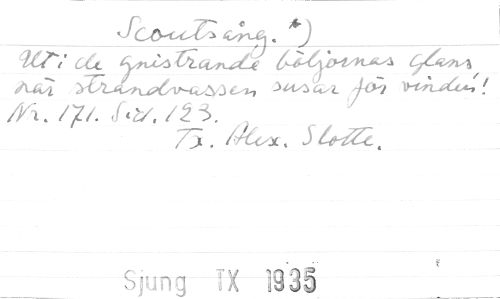 Scoutsång.*)
Uti de gnistrande böljornas glans
när strandvassen susar för vinden!
Nr. 171. Sid. 123.
Tx. Alex. Slotte.
Sjung IX 1935